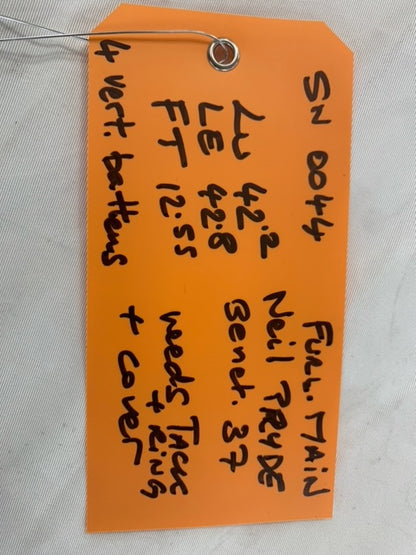 SN 0044 Furl. MAIN
Neil PRYDE
LU 42.2 Benet. 37
LE 42.8
FT 12.55 needs TACK
+ RING
4 vert. battens + cover